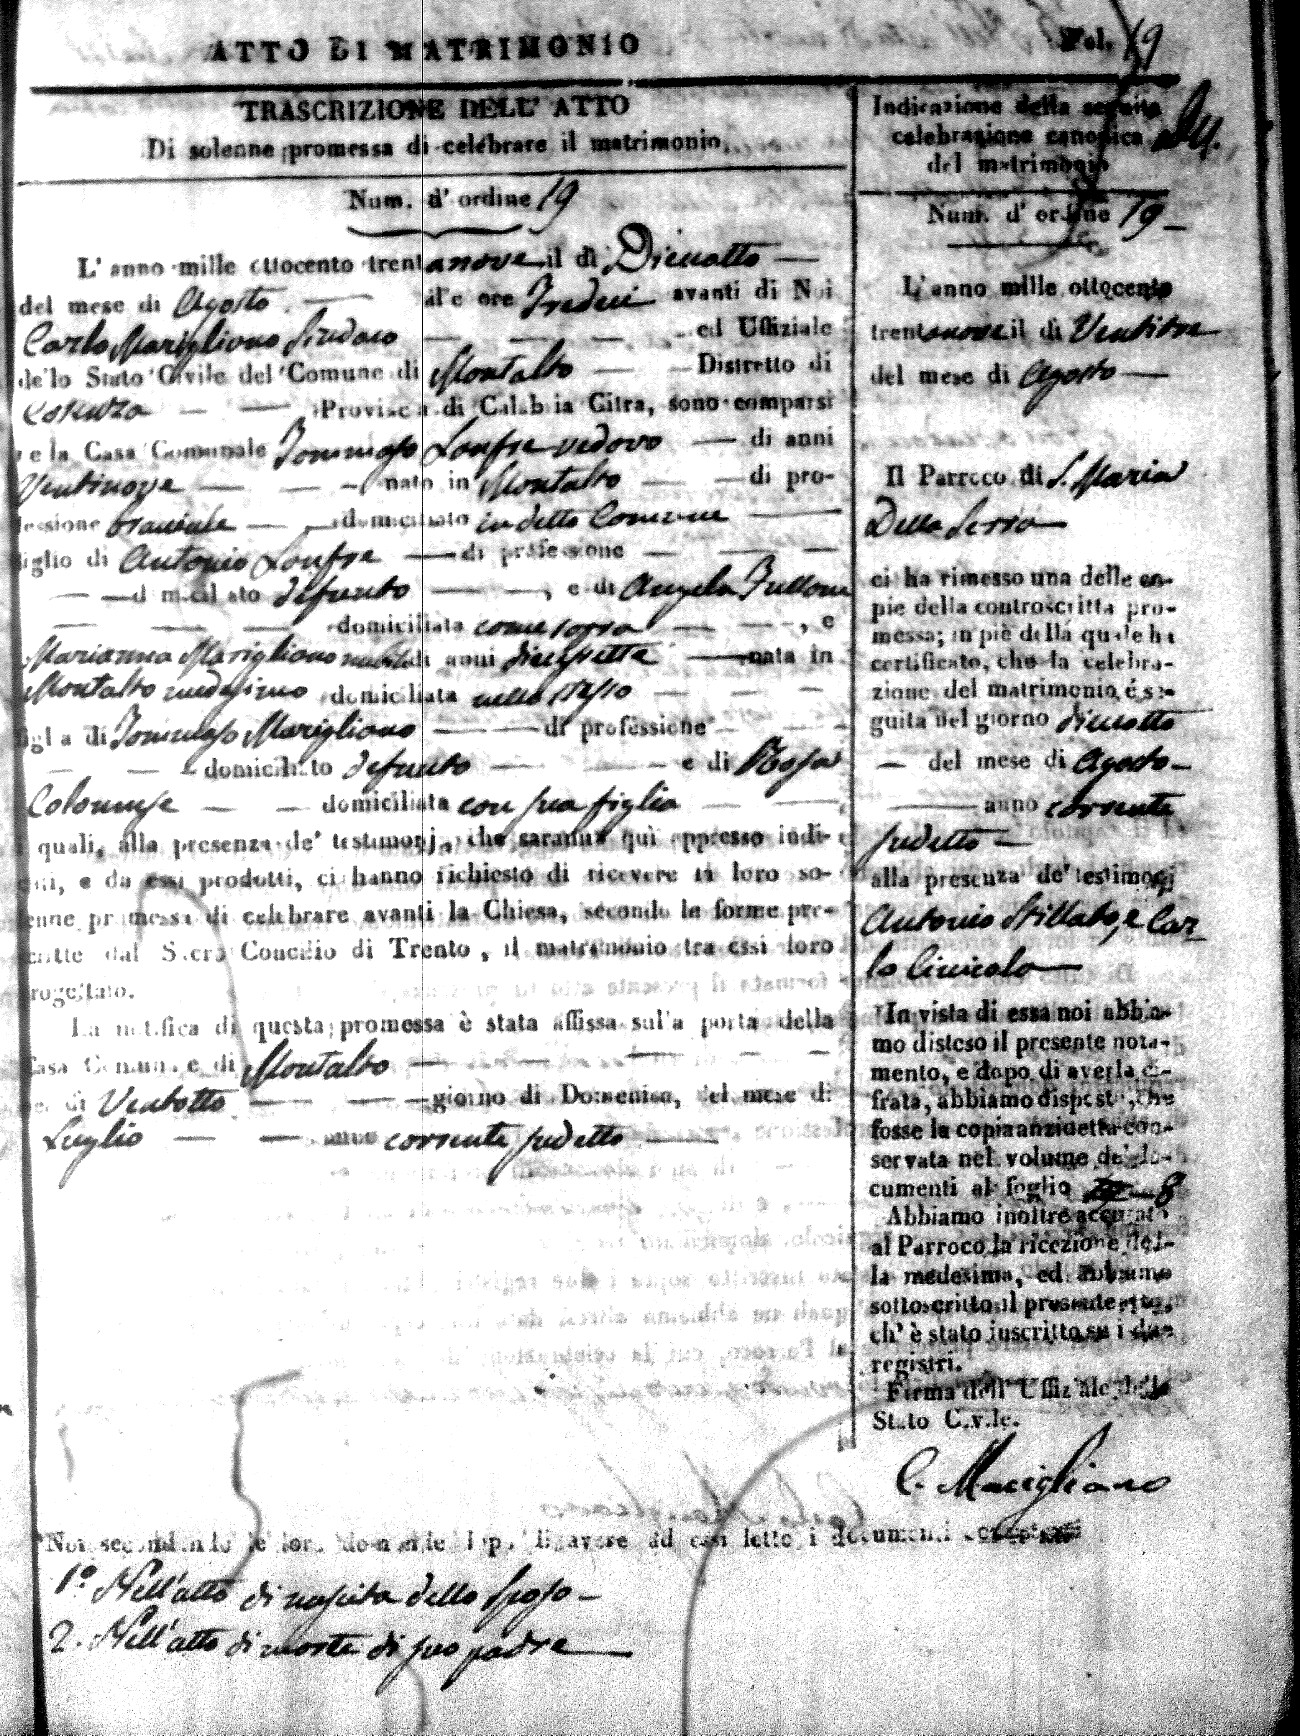 ATTO DI MATRIMONIO
Fol. 19
TRASCRIZIONE DELL' ATTO
Di solenne promessa di celebrare il matrimonio,
Num. d' ordine 19
L' anno mille ottocento trentanove il di Dieciotto
del mese di Agosto alle ore Tredici avanti di Noi
Carlo Marigliano Sindaco ed Uffiziale
dello Stato Civile del Comune di Montalto Distretto di
Cosenza Provincia di Calabria Citra, sono comparsi
nella Casa Comunale Tommaso Lonfre vedovo di anni
Ventinove nato in Montalto di pro-
fessione domiciliato in detto Comune
figlio di Antonio Lonfre di professione
domiciliato defunto, e di Angela
domiciliata come sopra, e
Marianna Marigliano nubile di anni diecisette nata in
Montalto medesimo domiciliata nello stesso
figlia di Tommaso Marigliano di professione
domiciliato defunto e di Rosa
Colonnese domiciliata con sua figlia
i quali, alla presenza de' testimonj, che saranno quì appresso indi-
cati, e da essi prodotti, ci hanno richiesto di ricevere la loro so-
lenne promessa di celebrare avanti la Chiesa, secondo le forme pre-
scritte dal Sacro Concilio di Trento, il matrimonio tra essi loro
progettato.
La notifica di questa promessa è stata affissa sulla porta della
Casa Comunale di Montalto
nel di Ventotto giorno di Domenica, del mese di
Luglio anno corrente sudetto
Noi secondando le loro domande dopo di avere ad essi letto i documenti
1.° Nell'atto di nascita dello sposo
2. Nell'atto di morte di suo padre
Indicazione della seguita
celebrazione canonica
del matrimonio
Num. d' ordine 19
L'anno mille ottocento
trentanove il di Ventitre
del mese di Agosto
Il Parroco di S. Maria
Della Serra
ci ha rimesso una delle co-
pie della controscritta pro-
messa; in piè della quale ha
certificato, che la celebra-
zione del matrimonio é se-
guita nel giorno dieciotto
del mese di Agosto
anno corrente
sudetto
alla presenza de' testimonj
Antonio Stillato, e Car
lo
In vista di essa noi abbia-
mo disteso il presente nota-
mento, e dopo di averla ci-
frata, abbiamo disposto, che
fosse la copia anzidetta con-
servata nel volume de' do-
cumenti al foglio 8
Abbiamo inoltre accusato
al Parroco la ricezione del-
la medesima, ed abbiamo
sottoscritto il presente atto,
ch' è stato inscritto su i due
registri.
Firma dell' Uffiziale dello
Stato Civile.
C. Marigliano